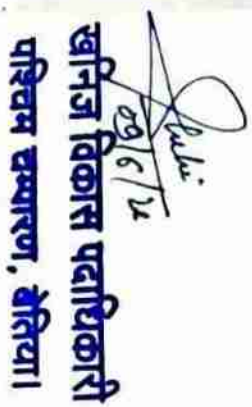 09/6/2
खनिज विकास पदाधिकारी
पश्चिम चम्पारण, बेतिया।